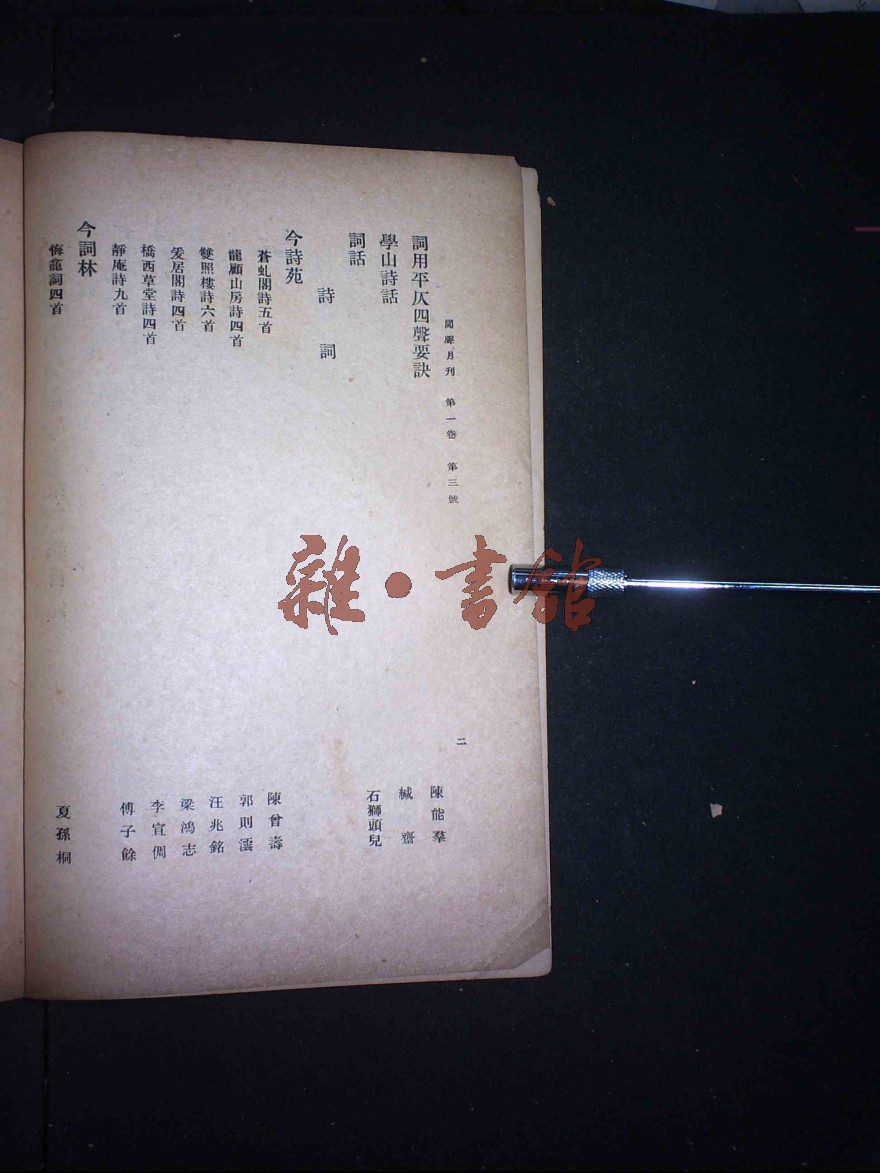 同聲月刊　第一卷　第三號　二
詞用平仄四聲要訣　陳能羣
學山詩話　緘齋
詞話　石獅頭兒
詩　詞
今詩苑
蒼虬閣詩五首　陳曾壽
龍顧山房詩四首　郭則澐
雙照樓詩六首　汪兆銘
爰居閣詩四首　梁鴻志
橋西草堂詩四首　李宣倜
靜庵詩九首　傅子餘
今詞林
悔龕詞四首　夏孫桐
雜·書館